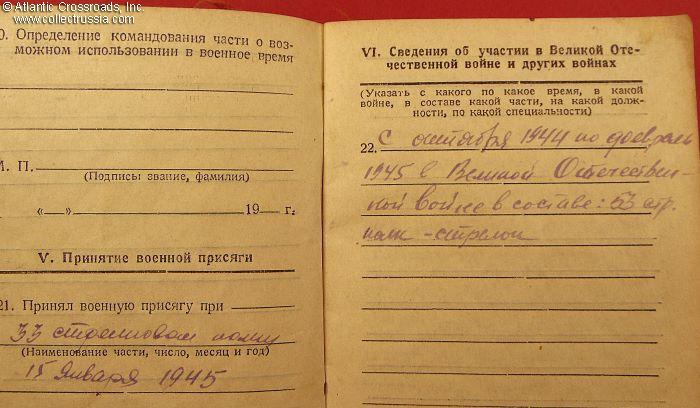 © Atlantic Crossroads, Inc.
www.collectrussia.com
0. Определение командования части о воз-
можном использовании в военное время
М. П.
(Подпись, звание, фамилия)
«—» 19— г.
V. Принятие военной присяги
21. Принял военную присягу при
33 стрелковом полку
(Наименование части, число, месяц и год)
15 Января 1945
VI. Сведения об участии в Великой Оте-
чественной войне и других войнах
(Указать с какого по какое время, в какой
войне, в составе какой части, на какой долж-
ности, по какой специальности)
22. С октября 1944 по февраль
1945 в Великой Отечествен-
ной войне в составе: 53 стр.
полк - стрелок